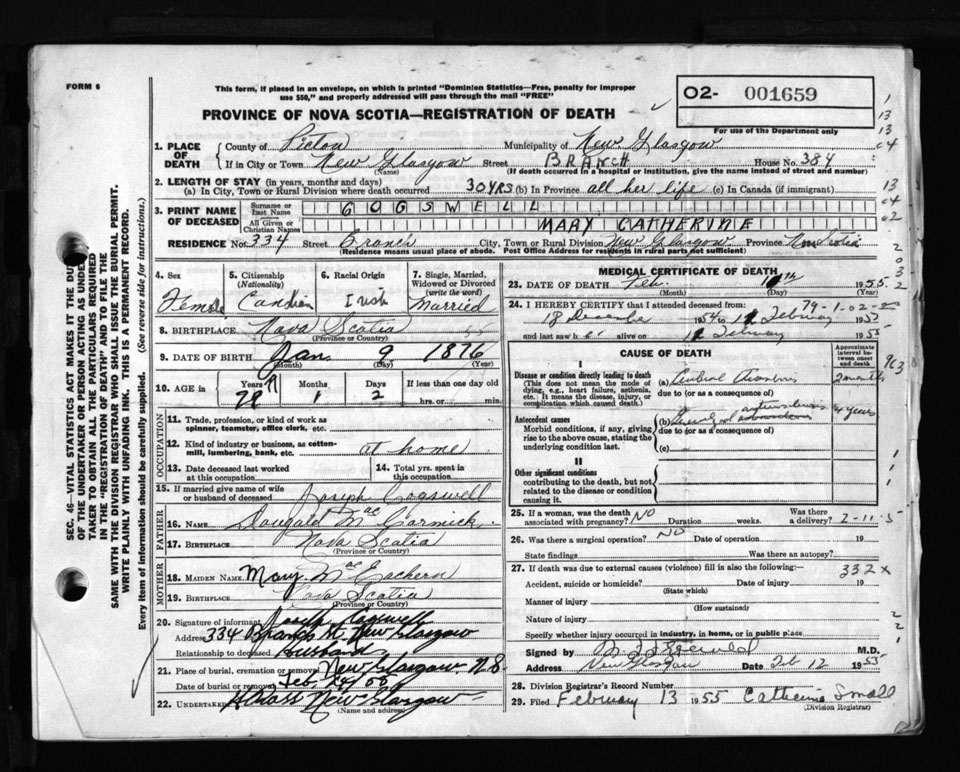 FORM 6
This form, if placed in an envelope, on which is printed "Dominion Statistics—Free, penalty for improper
use $50," and properly addressed will pass through the mail "FREE"
PROVINCE OF NOVA SCOTIA—REGISTRATION OF DEATH
02- 001659
For use of the Department only
1. PLACE OF DEATH
County of Pictou Municipality of New Glasgow
If in City or Town New Glasgow Street BRANCH House No. 384
(Name) (If death occurred in a hospital or institution, give the name instead of street and number)
2. LENGTH OF STAY (in years, months and days)
(a) In City, Town or Rural Division where death occurred 30 YRS (b) In Province all her life (c) In Canada (if immigrant)
3. PRINT NAME OF DECEASED
Surname or Last Name COGSWELL
All Given or Christian Names MARY CATHERINE
RESIDENCE No. 334 Street City, Town or Rural Division New Glasgow. Province Nova Scotia
(Residence means usual place of abode. Post Office Address for residents in rural parts not sufficient)
4. Sex Female
5. Citizenship (Nationality)
6. Racial Origin Irish
7. Single, Married, Widowed or Divorced (write the word) Married
8. BIRTHPLACE Nova Scotia
(Province or Country)
9. DATE OF BIRTH Jan 9 1876
(Month) (Day) (Year)
10. AGE in Years 79 Months 1 Days 2 If less than one day old hrs. or min.
OCCUPATION
11. Trade, profession, or kind of work as
spinner, teamster, office clerk, etc.
12. Kind of industry or business, as cotton-
mill, lumbering, bank, etc. at home
13. Date deceased last worked
at this occupation
14. Total yrs. spent in
this occupation
15. If married give name of wife
or husband of deceased Joseph Cogswell
FATHER
16. NAME Dougald MacCormick.
17. BIRTHPLACE Nova Scotia
(Province or Country)
MOTHER
18. MAIDEN NAME Mary MacEachern
19. BIRTHPLACE Nova Scotia
(Province or Country)
20. Signature of informant Joseph Cogswell
Address 334 Branch St. New Glasgow
Relationship to deceased Husband
21. Place of burial, cremation or removal New Glasgow. N.S.
Date of burial or removal Feb. 14/55
22. Undertaker New Glasgow
(Name and address)
MEDICAL CERTIFICATE OF DEATH
23. DATE OF DEATH Feb. 11th 1955
(Month) (Day) (Year)
24. I HEREBY CERTIFY that I attended deceased from 79-1-02-
18 December 1954 to 11 February 1955
and last saw h er alive on 11 February 1955
CAUSE OF DEATH
Approximate interval between onset and death
I
Disease or condition directly leading to death
(This does not mean the mode of
dying, e.g., heart failure, asthenia,
etc. It means the disease, injury, or
complication which caused death.)
(a) Cerebral Thrombosis 2 months
due to (or as a consequence of)
Antecedent causes
Morbid conditions, if any, giving
rise to the above cause, stating the
underlying condition last.
(b) arteriosclerosis 4 years
due to (or as a consequence of)
(c)
II
Other significant conditions
contributing to the death, but not
related to the disease or condition
causing it.
25. If a woman, was the death
associated with pregnancy? NO Duration weeks. Was there a delivery?
2-11-5
26. Was there a surgical operation? NO Date of operation 19
State findings Was there an autopsy?
27. If death was due to external causes (violence) fill in also the following:— 332x
Accident, suicide or homicide? Date of injury 19
(State which)
Manner of injury
(How sustained)
Nature of injury
Specify whether injury occurred in industry, in home, or in public place
Signed by M.D.
Address New Glasgow Date Feb 12 1955
28. Division Registrar's Record Number
29. Filed February 13 1955 Catherine Small
(Division Registrar)
SEC. 46—VITAL STATISTICS ACT MAKES IT THE DUTY
OF THE UNDERTAKER OR PERSON ACTING AS UNDER-
TAKER TO OBTAIN ALL THE PARTICULARS REQUIRED
IN THE "REGISTRATION OF DEATH" AND TO FILE THE
SAME WITH THE DIVISION REGISTRAR WHO SHALL ISSUE THE BURIAL PERMIT.
WRITE PLAINLY WITH UNFADING INK. THIS IS A PERMANENT RECORD.
Every item of information should be carefully supplied. (See reverse side for instructions.)